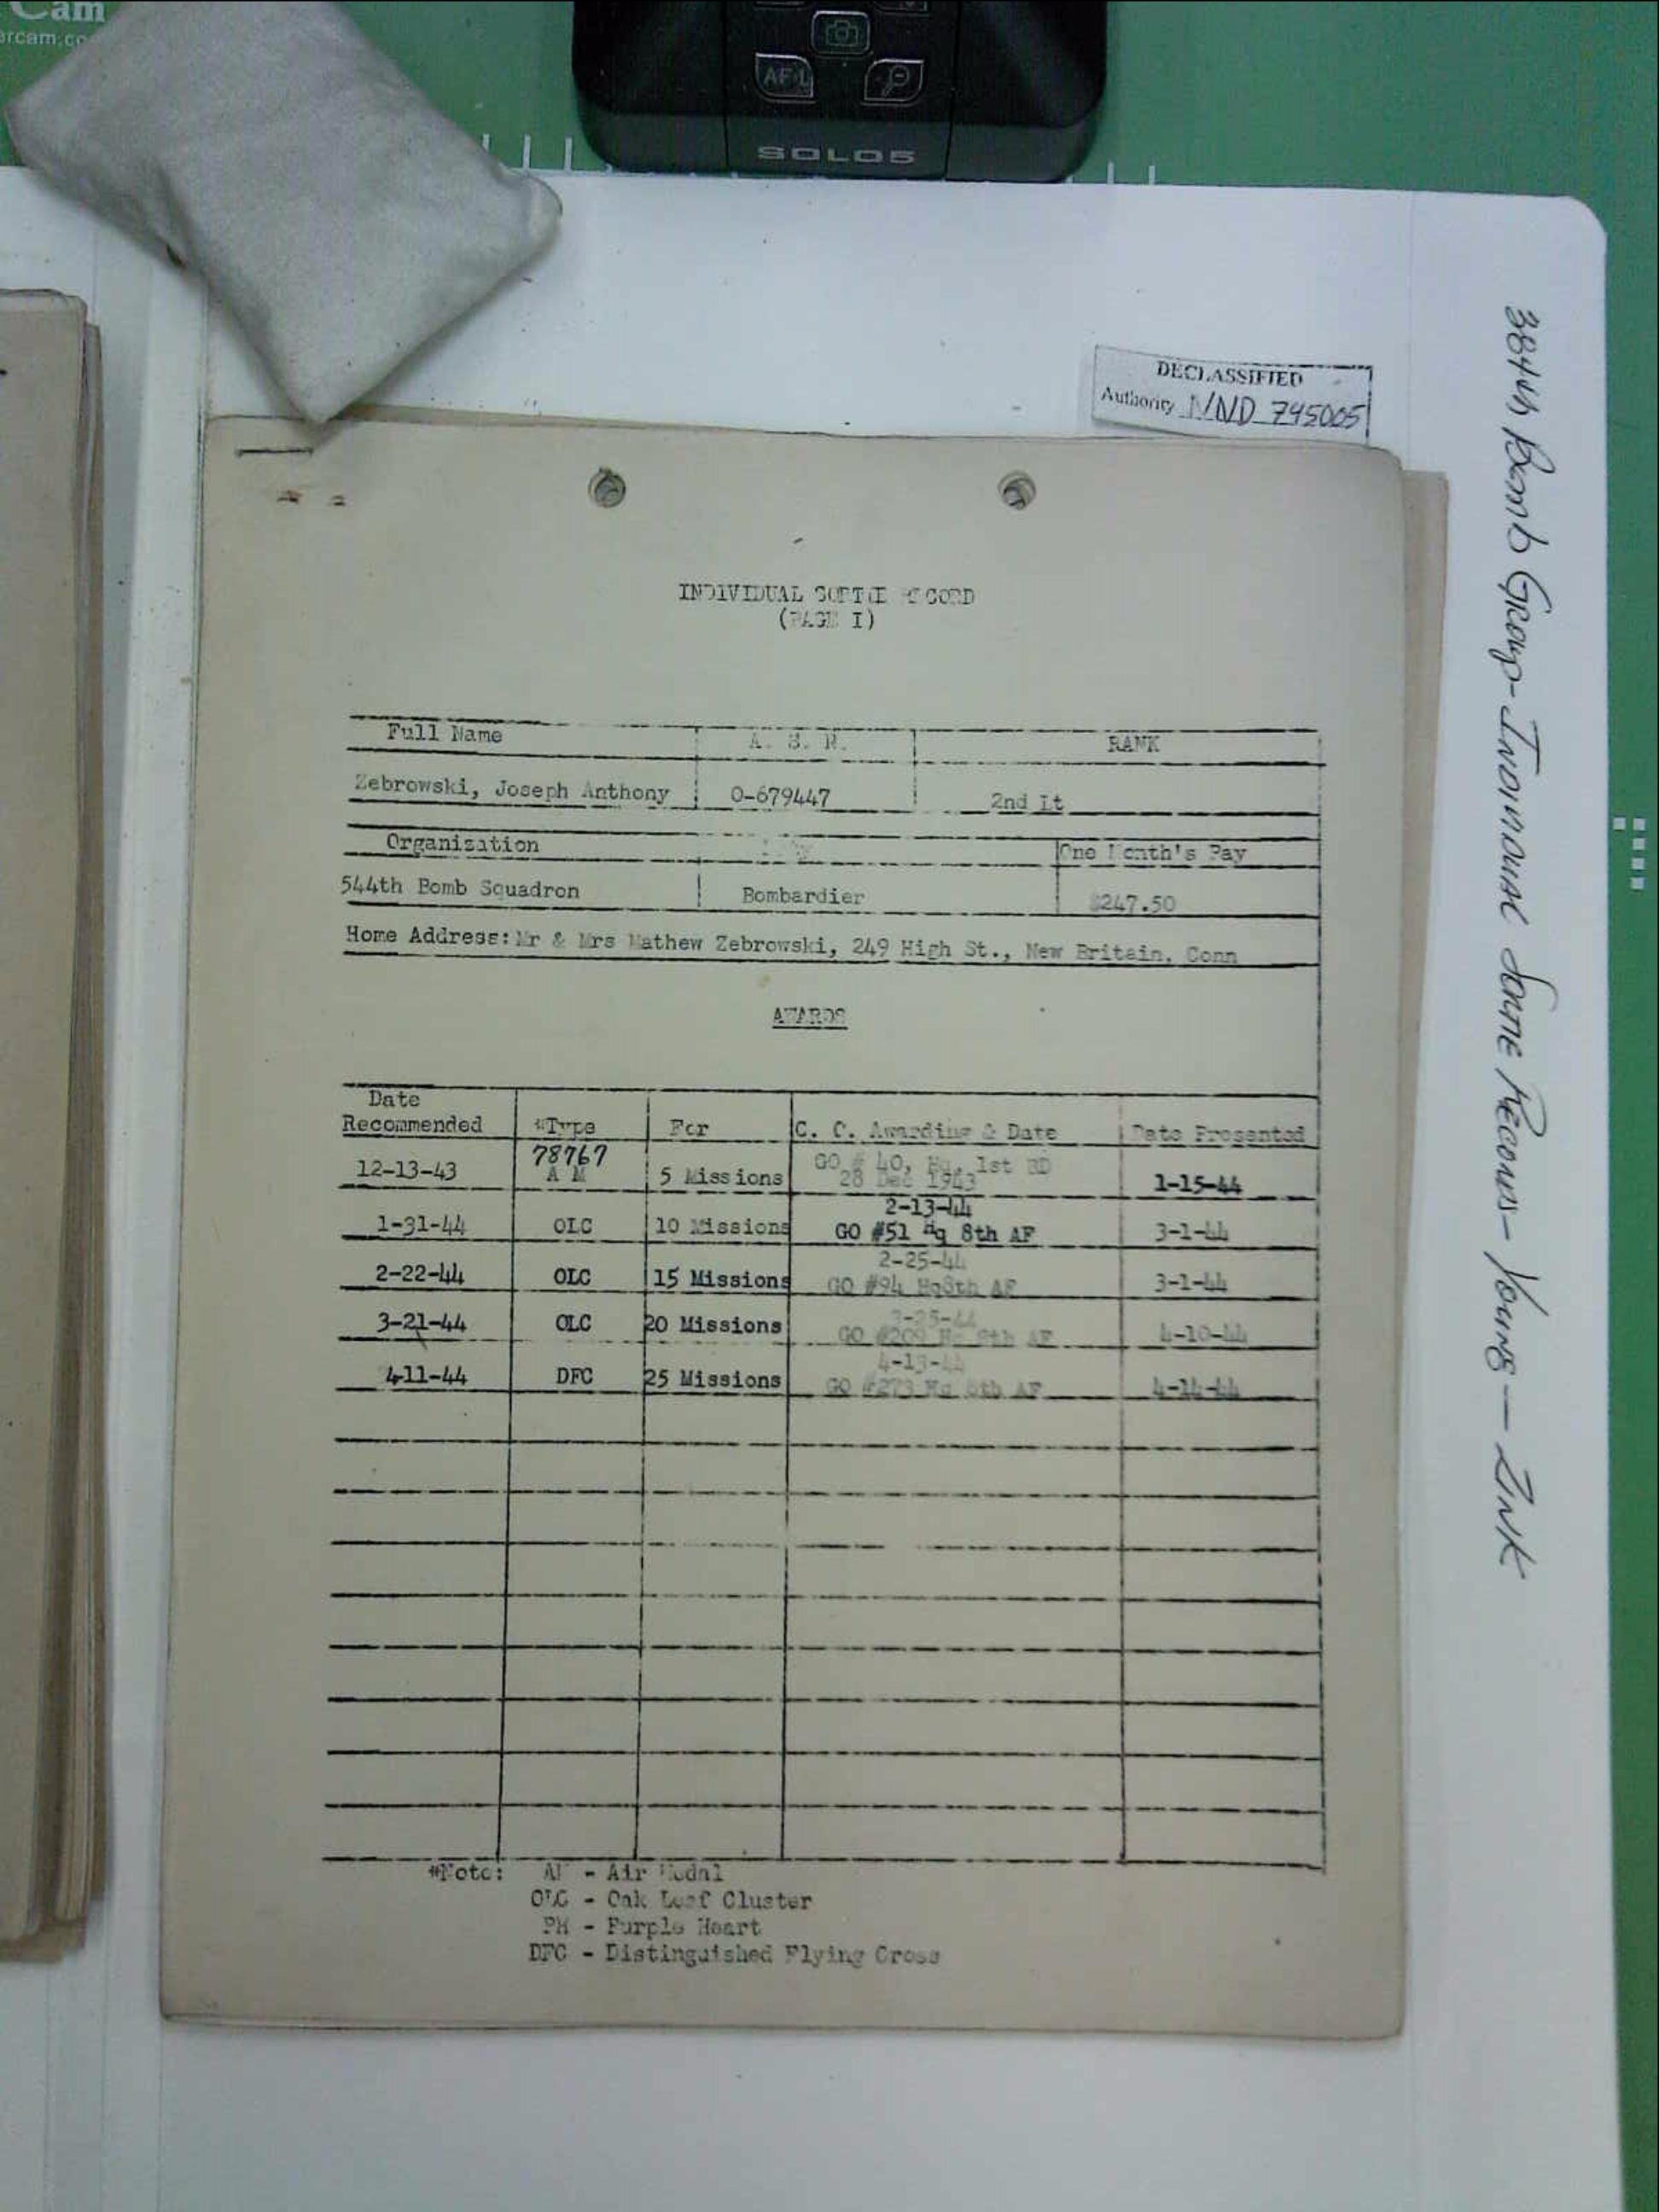 Cam
SOLO5
AF-L
DECLASSIFIED
Authority NND 745005
384th Bomb Group - Individual Sortie Records - Young — Zink
INDIVIDUAL SORTIE RECORD
(PAGE I)
Full Name A. S. N. RANK
Zebrowski, Joseph Anthony 0-679447 2nd Lt
Organization One Month's Pay
544th Bomb Squadron Bombardier $247.50
Home Address: Mr & Mrs Mathew Zebrowski, 249 High St., New Britain, Conn
AWARDS
Date
Recommended *Type For C. C. Awarding & Date Date Presented
78767
12-13-43 A M 5 Missions GO # 40, Hq, 1st BD 28 Dec 1943 1-15-44
2-13-44
1-31-44 OLC 10 Missions GO #51 Hq 8th AF 3-1-44
2-25-44
2-22-44 OLC 15 Missions GO #94 Hq8th AF 3-1-44
3-25-44
3-21-44 OLC 20 Missions GO #209 Hq 8th AF 4-10-44
4-13-44
4-11-44 DFC 25 Missions GO #273 Hq 8th AF 4-14-44
*Note: AM - Air Medal
OLC - Oak Leaf Cluster
PH - Purple Heart
DFC - Distinguished Flying Cross